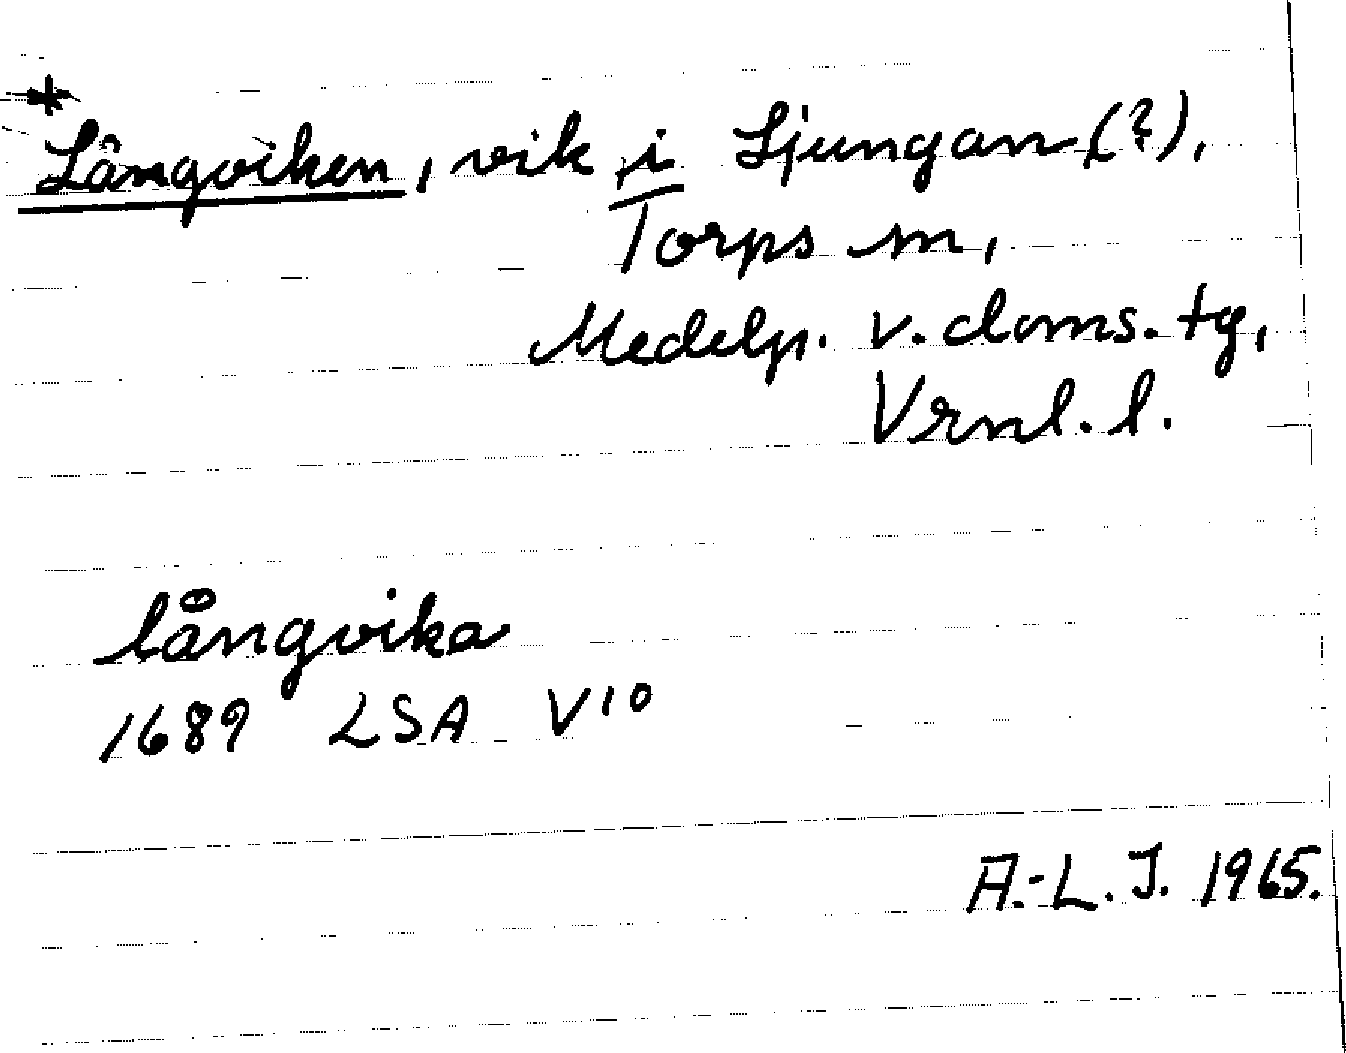 *
Långviken, vik i Ljungan (?),
Torps sn,
Medelp. v. doms. tg,
Vrnl. l.
långvika
1689 LSA V10
A.-L. J. 1965.